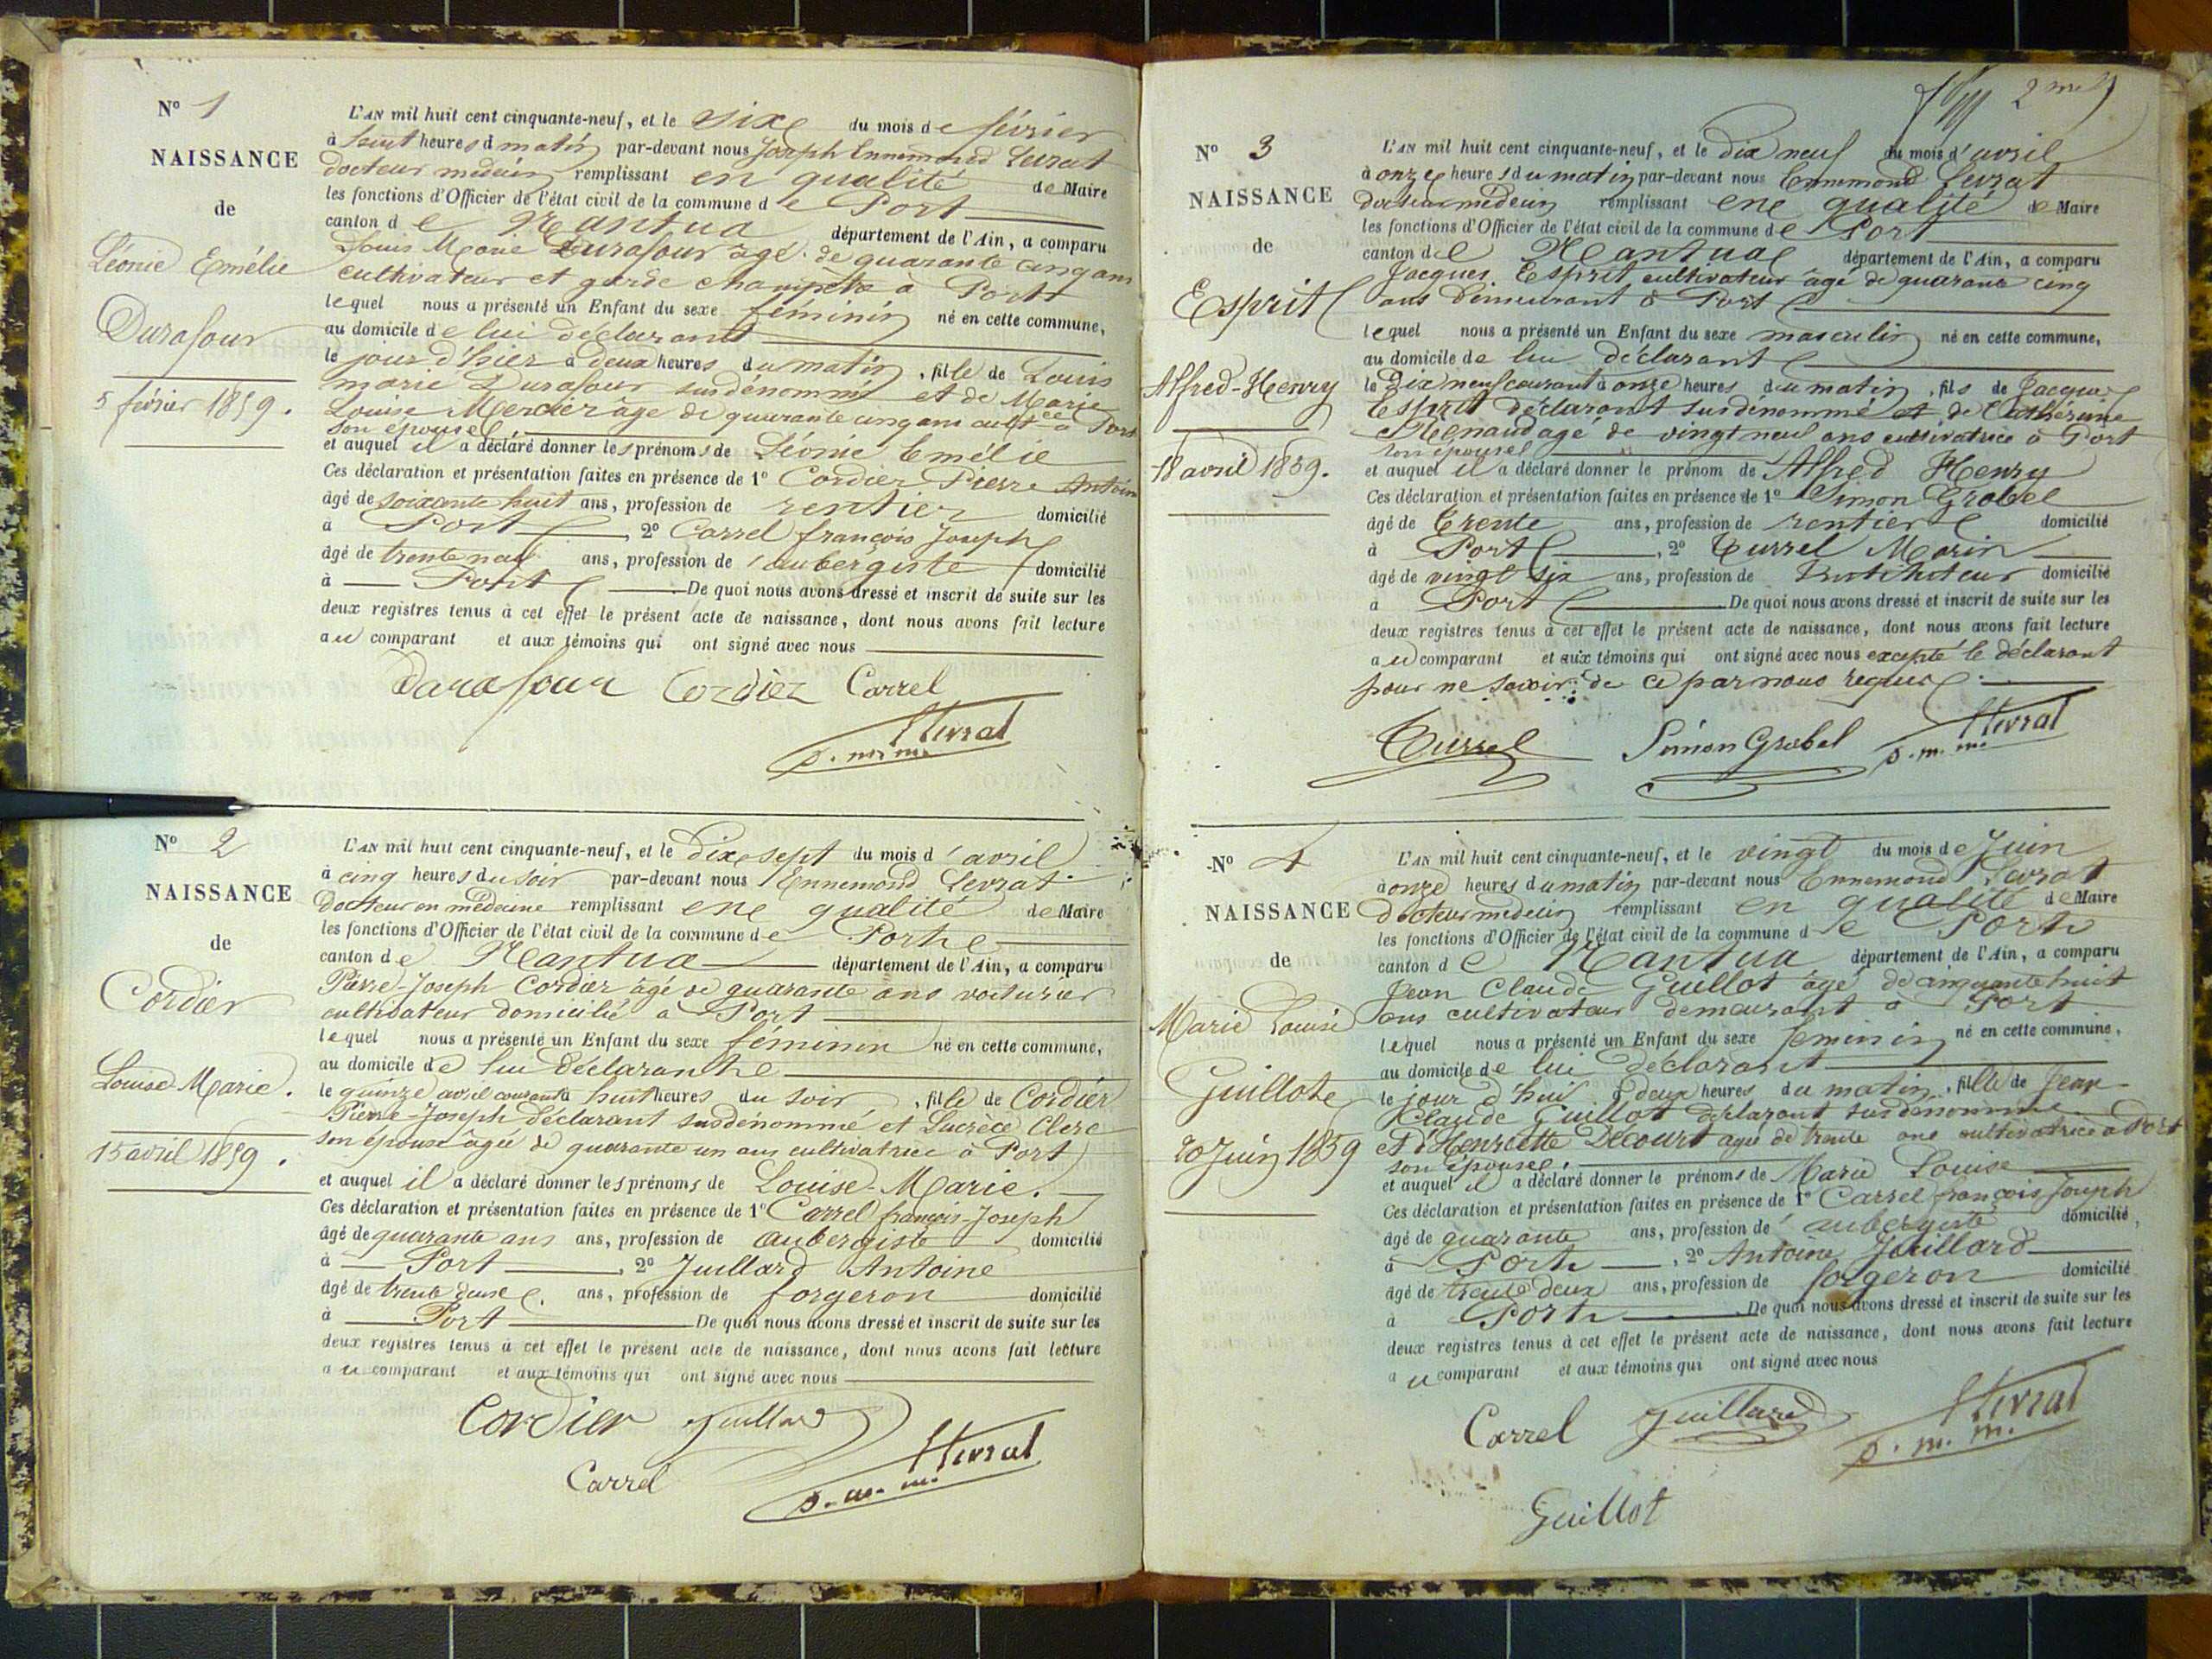 N° 1
NAISSANCE
de
Léonie Emélie
Durafour
5 février 1859.
L'AN mil huit cent cinquante-neuf, et le Six du mois de février
à huit heures d matin par-devant nous Joseph Ennemond Levrat
docteur médecin remplissant en qualité de Maire
les fonctions d'Officier de l'état civil de la commune de Port
canton de Nantua département de l'Ain, a comparu
Louis Marie Durafour âgé de quarante cinq ans
cultivateur et garde champêtre à Port
lequel nous a présenté un Enfant du sexe féminin né en cette commune,
au domicile de lui déclarant
le jour d'hier à deux heures du matin, fille de Louis
marie Durafour susdénommé et de Marie
Louise Mercier âgé de quarante cinq ans cult.ce à Port
son épouse
et auquel il a déclaré donner les prénoms de Léonie Emélie
Ces déclaration et présentation faites en présence de 1° Cordier Pierre Antoine
âgé de soixante huit ans, profession de rentier domicilié
à Port, 2° Carrel françois Joseph
âgé de trente neuf ans, profession de aubergiste domicilié
à Port De quoi nous avons dressé et inscrit de suite sur les
deux registres tenus à cet effet le présent acte de naissance, dont nous avons fait lecture
au comparant et aux témoins qui ont signé avec nous
Durafour Cordier Carrel
Levrat
p. m. m.
N° 2
NAISSANCE
de
Cordier
Louise Marie.
15 avril 1859.
L'AN mil huit cent cinquante-neuf, et le Dix sept du mois d'avril
à cinq heures du soir par-devant nous Ennemond Levrat
Docteur en médecine remplissant en qualité de Maire
les fonctions d'Officier de l'état civil de la commune de Port
canton de Nantua département de l'Ain, a comparu
Pierre-Joseph Cordier âgé de quarante ans voiturier
cultivateur domicilié à Port
lequel nous a présenté un Enfant du sexe féminin né en cette commune,
au domicile de lui déclarant
le quinze avril courant à huit heures du soir, fille de Cordier
Pierre-Joseph Déclarant susdénommé et Lucrèce Clerc
son épouse âgée de quarante un ans cultivatrice à Port
et auquel il a déclaré donner les prénoms de Louise-Marie.
Ces déclaration et présentation faites en présence de 1° Carrel françois-Joseph
âgé de quarante ans ans, profession de aubergiste domicilié
à Port, 2° Juillard Antoine
âgé de trente deux ans, profession de forgeron domicilié
à Port De quoi nous avons dressé et inscrit de suite sur les
deux registres tenus à cet effet le présent acte de naissance, dont nous avons fait lecture
au comparant et aux témoins qui ont signé avec nous
Cordier Juillard
Carrel
Levrat
p. m. m.
2me
N° 3
NAISSANCE
de
Esprit
Alfred-Henry
18 avril 1859.
L'AN mil huit cent cinquante-neuf, et le Dix neuf du mois d'avril
à onze heures du matin par-devant nous Ennemond Levrat
docteur médecin remplissant en qualité de Maire
les fonctions d'Officier de l'état civil de la commune de Port
canton de Nantua département de l'Ain, a comparu
Jacques Esprit cultivateur âgé de quarante cinq
ans demeurant à Port
lequel nous a présenté un Enfant du sexe masculin né en cette commune,
au domicile de lui déclarant
le Dix neuf courant à onze heures du matin, fils de Jacques
Esprit déclarant susdénommé et de Catherine
Renaud agé de vingt neuf ans cultivatrice à Port
son épouse
et auquel il a déclaré donner le prénom de Alfred Henry
Ces déclaration et présentation faites en présence de 1° Simon Grobel
âgé de Trente ans, profession de rentier domicilié
à Port, 2° Turrel Marin
âgé de vingt six ans, profession de Instituteur domicilié
à Port De quoi nous avons dressé et inscrit de suite sur les
deux registres tenus à cet effet le présent acte de naissance, dont nous avons fait lecture
au comparant et aux témoins qui ont signé avec nous excepté le déclarant
pour ne savoir de ce par nous requis
Turrel Simon Grobel Levrat
p. m. m.
N° 4
NAISSANCE
de
Marie Louise
Guillot
20 Juin 1859
L'AN mil huit cent cinquante-neuf, et le vingt du mois de Juin
à onze heures du matin par-devant nous Ennemond Levrat
Docteur médecin remplissant en qualité de Maire
les fonctions d'Officier de l'état civil de la commune de Port
canton de Nantua département de l'Ain, a comparu
Jean Claude Guillot âgé de cinquante huit
ans cultivateur demeurant à Port
lequel nous a présenté un Enfant du sexe feminin né en cette commune,
au domicile de lui déclarant
le jour d'hui à deux heures du matin, fille de Jean
Claude Guillot déclarant susdénommé
et d'Henriette Décourt agée de trente ans cultivatrice à Port
son épouse
et auquel il a déclaré donner le prénoms de Marie Louise
Ces déclaration et présentation faites en présence de 1° Carrel françois Joseph
âgé de quarante ans, profession de aubergiste domicilié
à Port, 2° Antoine Juillard
âgé de trente deux ans, profession de forgeron domicilié
à Port De quoi nous avons dressé et inscrit de suite sur les
deux registres tenus à cet effet le présent acte de naissance, dont nous avons fait lecture
au comparant et aux témoins qui ont signé avec nous
Carrel Juillard Levrat
p. m. m.
Guillot